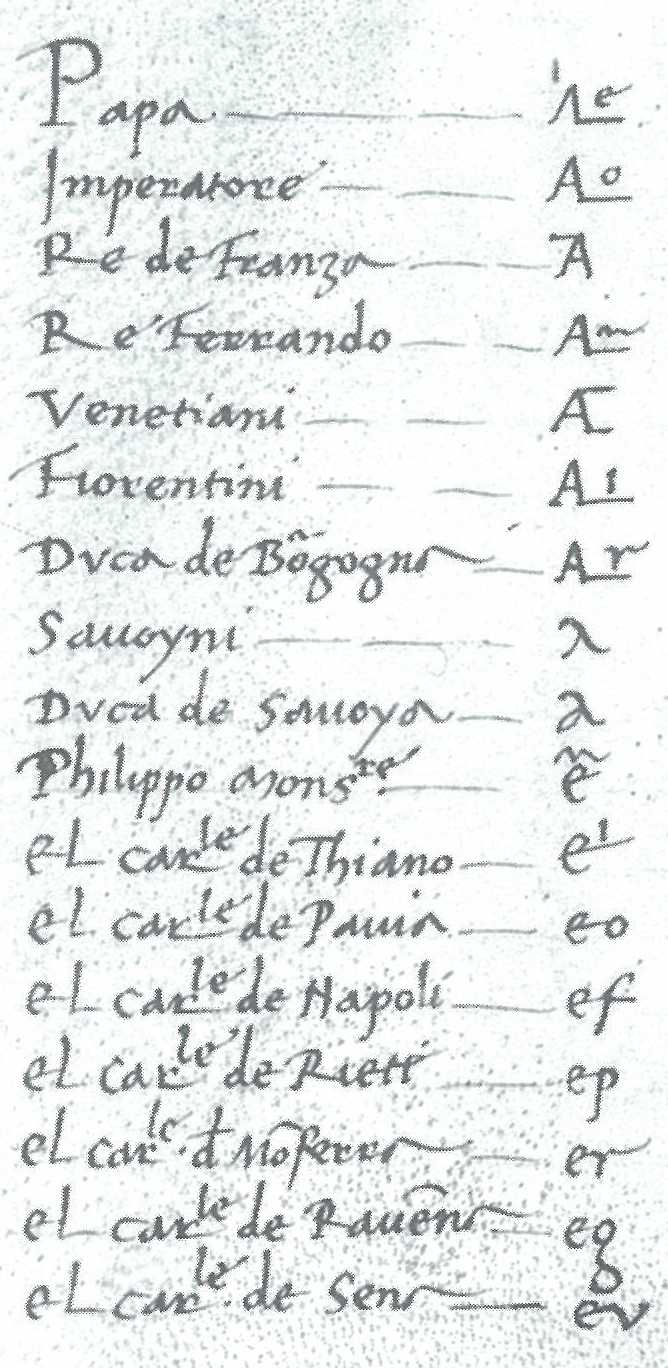 Papa — Aᵉ
Imperatore — Aº
Re de Franza — A
Re Ferrando — A
Venetiani — Æ
Fiorentini — Aı
Duca de Bõgogna — Aʳ
Sauoyni — λ
Duca de Sauoya — a
Philippo Monsʳᵉ — ẽ
el carˡᵉ de Thiano — eı
el carˡᵉ de Pauia — eo
el carˡᵉ de Napoli — ef
el carˡᵉ de Rieti — ep
el carˡᵉ đ Mõferra — er
el carˡᵉ de Rauẽna — eg
el carˡᵉ de Sena — ev